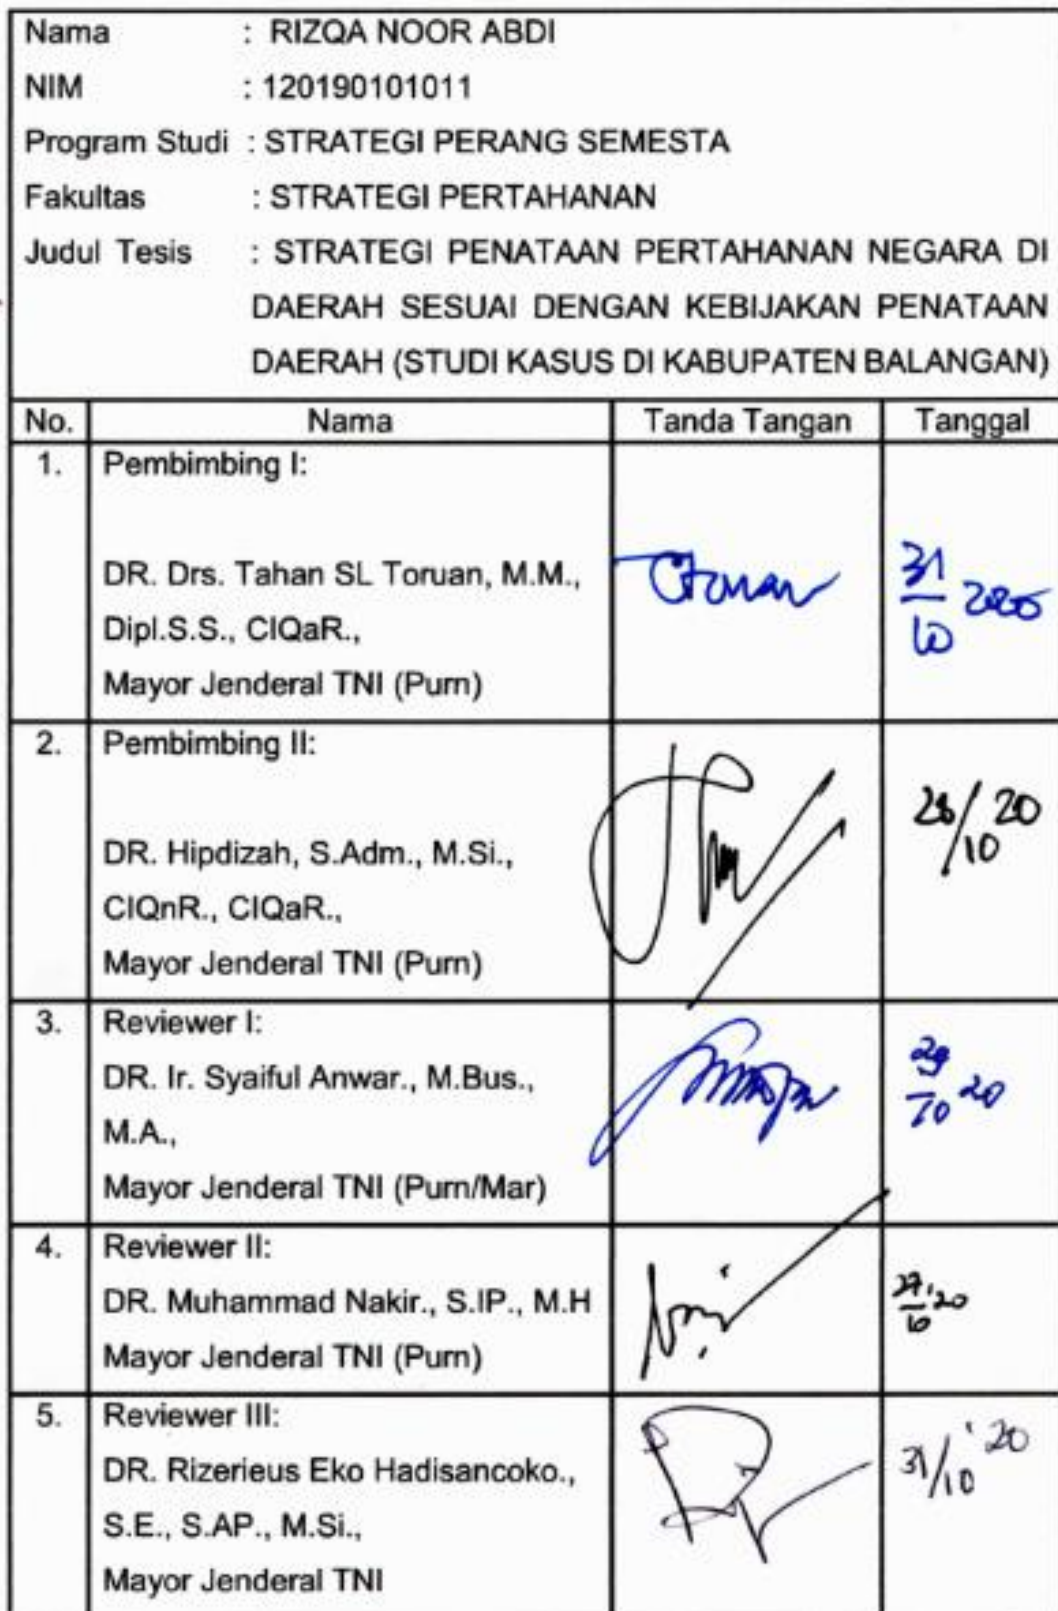 Nama : RIZQA NOOR ABDI
NIM : 120190101011
Program Studi : STRATEGI PERANG SEMESTA
Fakultas : STRATEGI PERTAHANAN
Judul Tesis : STRATEGI PENATAAN PERTAHANAN NEGARA DI
DAERAH SESUAI DENGAN KEBIJAKAN PENATAAN
DAERAH (STUDI KASUS DI KABUPATEN BALANGAN)
No. Nama Tanda Tangan Tanggal
1. Pembimbing I:
DR. Drs. Tahan SL Toruan, M.M.,
Dipl.S.S., CIQaR.,
Mayor Jenderal TNI (Purn)
31/10 2020
2. Pembimbing II:
DR. Hipdizah, S.Adm., M.Si.,
CIQnR., CIQaR.,
Mayor Jenderal TNI (Purn)
/10 20
3. Reviewer I:
DR. Ir. Syaiful Anwar., M.Bus.,
M.A.,
Mayor Jenderal TNI (Purn/Mar)
29/10 20
4. Reviewer II:
DR. Muhammad Nakir., S.IP., M.H
Mayor Jenderal TNI (Purn)
27/10 '20
5. Reviewer III:
DR. Rizerieus Eko Hadisancoko.,
S.E., S.AP., M.Si.,
Mayor Jenderal TNI
31/10 '20